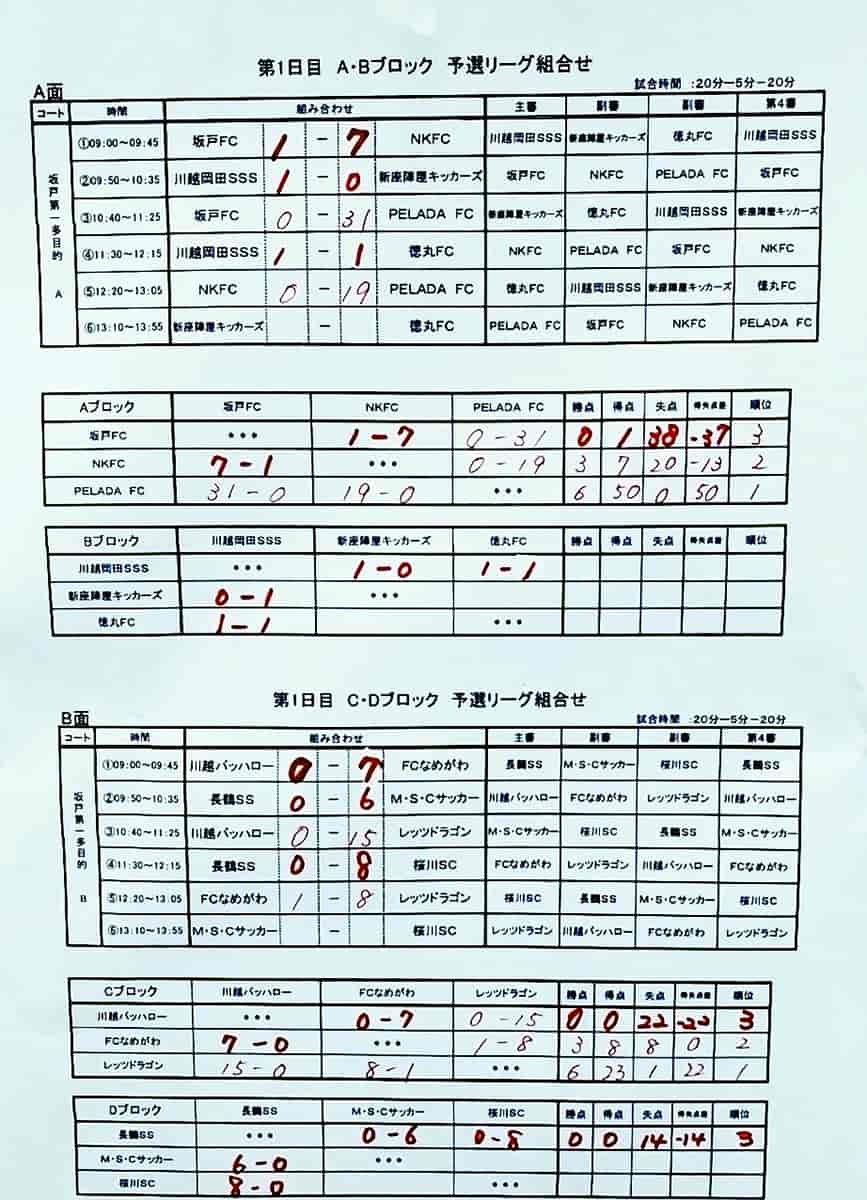 第1日目 A・Bブロック 予選リーグ組合せ
試合時間 :20分ー5分ー20分
A面
コート 時間 組み合わせ 主審 副審 副審 第4審
坂戸第一多目的 A
①09:00～09:45 坂戸FC 1 － 7 NKFC 川越岡田SSS 新座陣屋キッカーズ 徳丸FC 川越岡田SSS
②09:50～10:35 川越岡田SSS 1 － 0 新座陣屋キッカーズ 坂戸FC NKFC PELADA FC 坂戸FC
③10:40～11:25 坂戸FC 0 － 31 PELADA FC 新座陣屋キッカーズ 徳丸FC 川越岡田SSS 新座陣屋キッカーズ
④11:30～12:15 川越岡田SSS 1 － 1 徳丸FC NKFC PELADA FC 坂戸FC NKFC
⑤12:20～13:05 NKFC 0 － 19 PELADA FC 徳丸FC 川越岡田SSS 新座陣屋キッカーズ 徳丸FC
⑥13:10～13:55 新座陣屋キッカーズ － 徳丸FC PELADA FC 坂戸FC NKFC PELADA FC
Aブロック 坂戸FC NKFC PELADA FC 勝点 得点 失点 得失点差 順位
坂戸FC ・・・ 1－7 0－31 0 1 38 -37 3
NKFC 7－1 ・・・ 0－19 3 7 20 -13 2
PELADA FC 31－0 19－0 ・・・ 6 50 0 50 1
Bブロック 川越岡田SSS 新座陣屋キッカーズ 徳丸FC 勝点 得点 失点 得失点差 順位
川越岡田SSS ・・・ 1－0 1－1
新座陣屋キッカーズ 0－1 ・・・
徳丸FC 1－1 ・・・
第1日目 C・Dブロック 予選リーグ組合せ
試合時間 :20分ー5分ー20分
B面
コート 時間 組み合わせ 主審 副審 副審 第4審
坂戸第一多目的 B
①09:00～09:45 川越バッハロー 0 － 7 FCなめがわ 長鶴SS M・S・Cサッカー 桜川SC 長鶴SS
②09:50～10:35 長鶴SS 0 － 6 M・S・Cサッカー 川越バッハロー FCなめがわ レッツドラゴン 川越バッハロー
③10:40～11:25 川越バッハロー 0 － 15 レッツドラゴン M・S・Cサッカー 桜川SC 長鶴SS M・S・Cサッカー
④11:30～12:15 長鶴SS 0 － 8 桜川SC FCなめがわ レッツドラゴン 川越バッハロー FCなめがわ
⑤12:20～13:05 FCなめがわ 1 － 8 レッツドラゴン 桜川SC 長鶴SS M・S・Cサッカー 桜川SC
⑥13:10～13:55 M・S・Cサッカー － 桜川SC レッツドラゴン 川越バッハロー FCなめがわ レッツドラゴン
Cブロック 川越バッハロー FCなめがわ レッツドラゴン 勝点 得点 失点 得失点差 順位
川越バッハロー ・・・ 0－7 0－15 0 0 22 -22 3
FCなめがわ 7－0 ・・・ 1－8 3 8 8 0 2
レッツドラゴン 15－0 8－1 ・・・ 6 23 1 22 1
Dブロック 長鶴SS M・S・Cサッカー 桜川SC 勝点 得点 失点 得失点差 順位
長鶴SS ・・・ 0－6 0－8 0 0 14 -14 3
M・S・Cサッカー 6－0 ・・・
桜川SC 8－0 ・・・